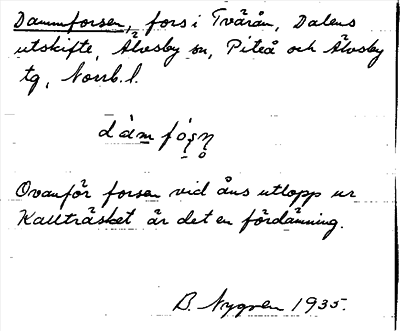 Dammforsen, fors i Tvärån, Dalens
utskifte, Älvsby sn, Piteå och Älvsby
tg, Norrb. l.
dàm fó̱ṣṇ̥
Ovanför forsen vid åns utlopp ur
Kallträsket är det en fördämning.
B. Nygren 1935.